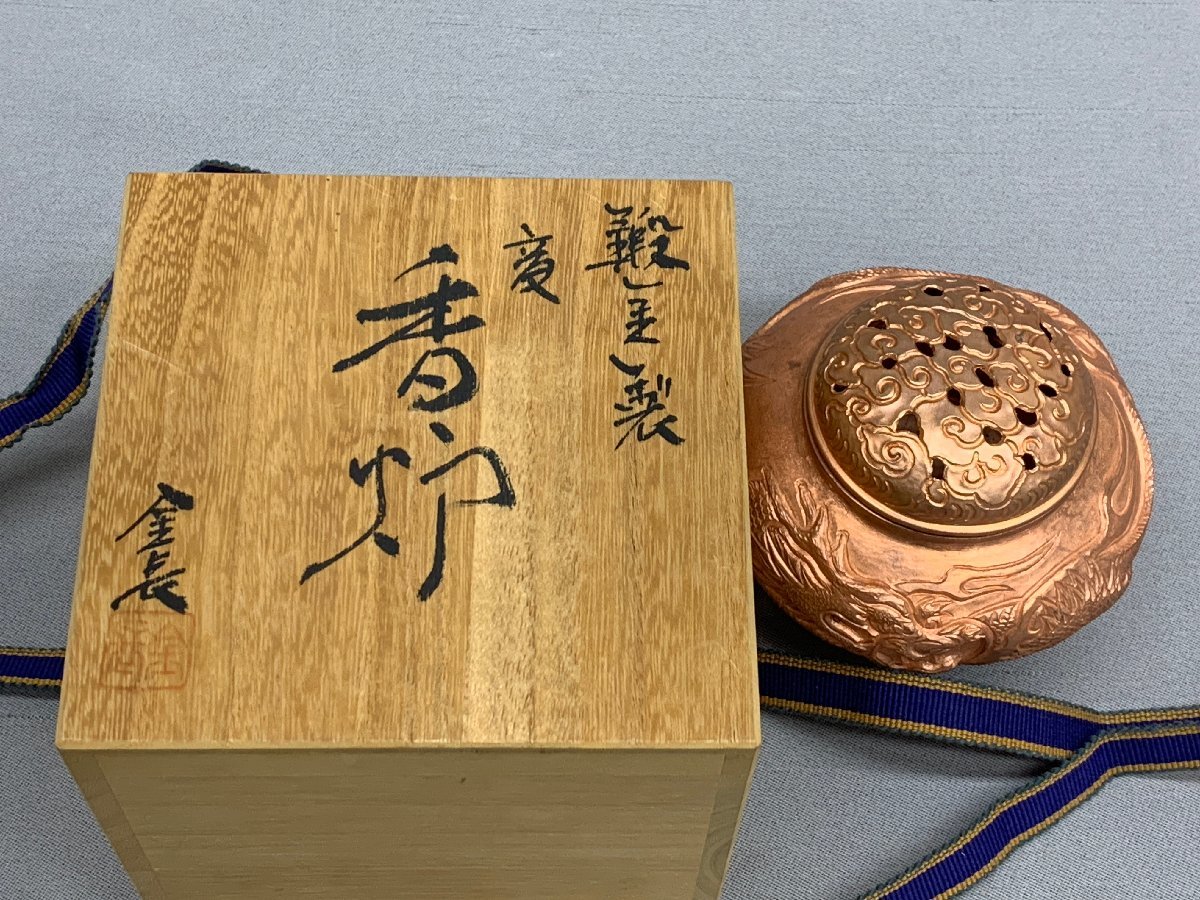 鍛金製
香炉
金長